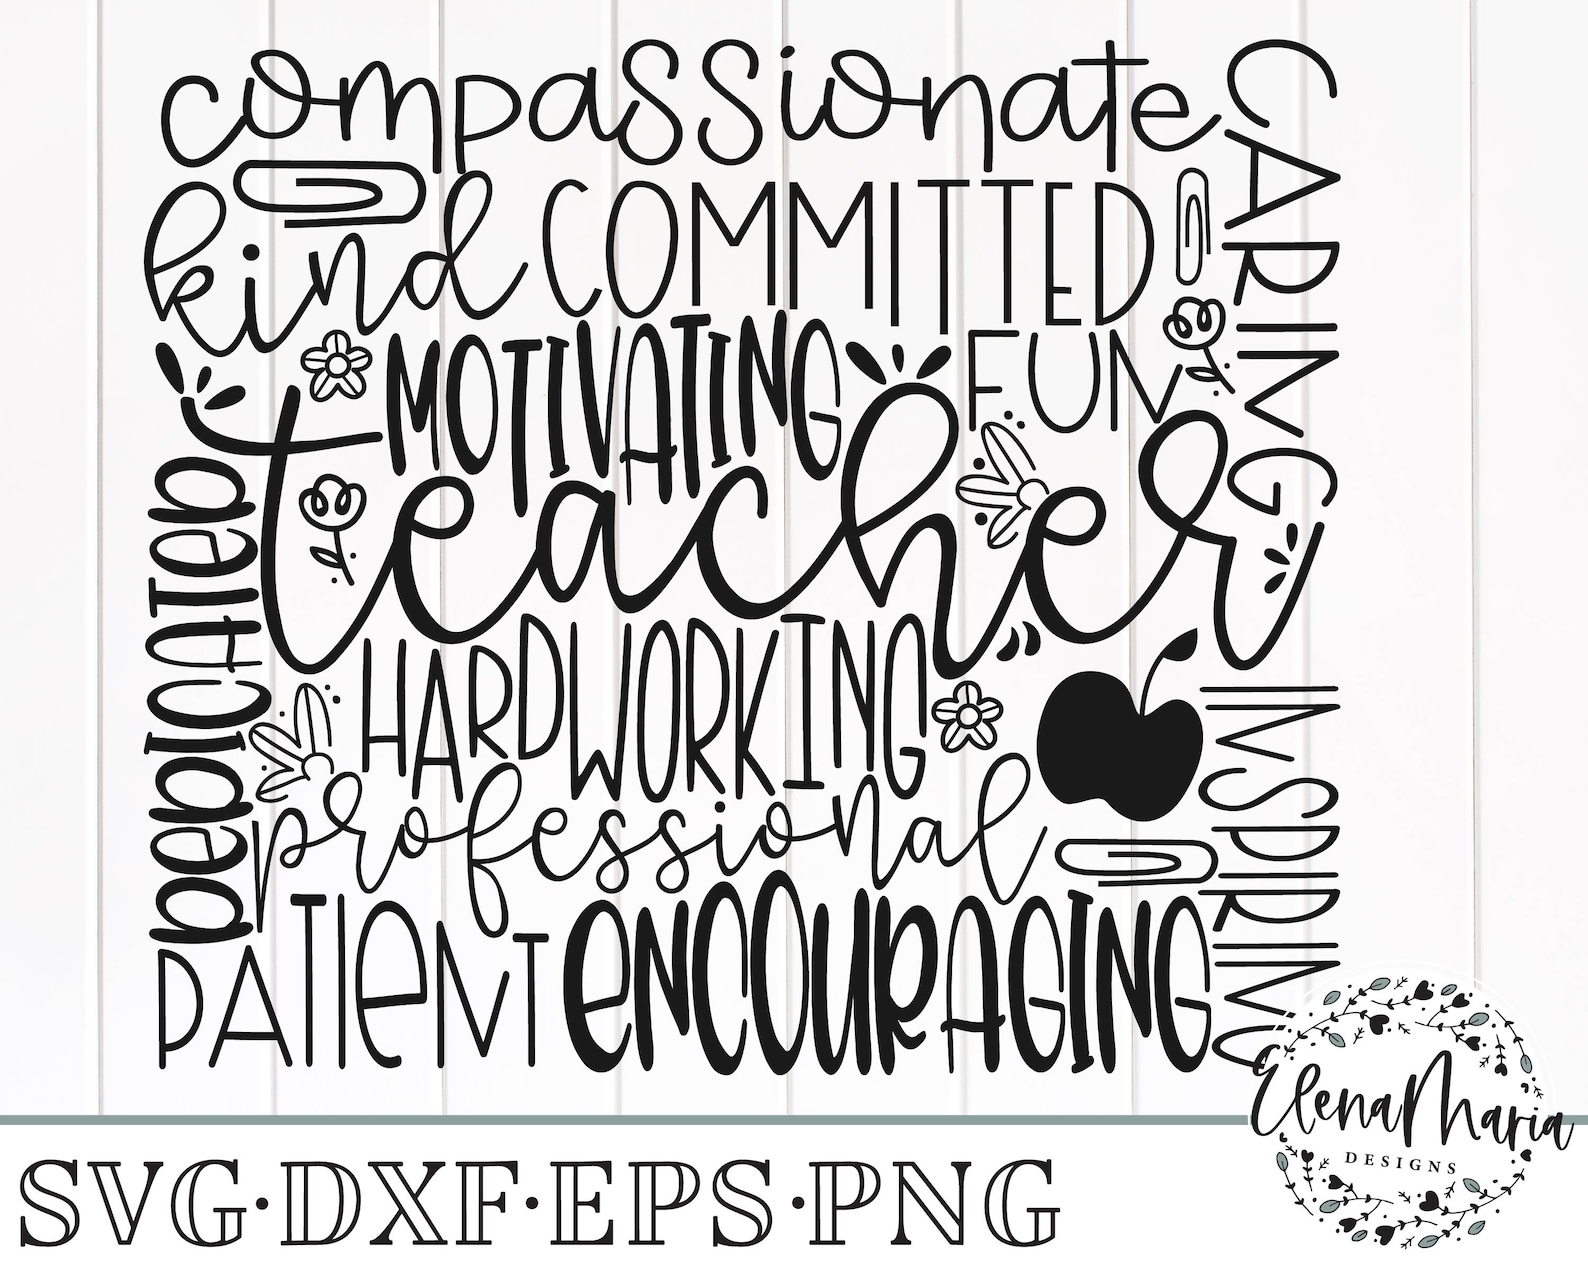 compassionate
CARING
kind COMMITTED
MOTIVATING FUN
teacher
DeDICATeD
HARDWORKING
INSPIRING
professional
PATIeNT eNCOURAGING
ElenaMaria
DESIGNS
SVG·DXF·EPS·PNG